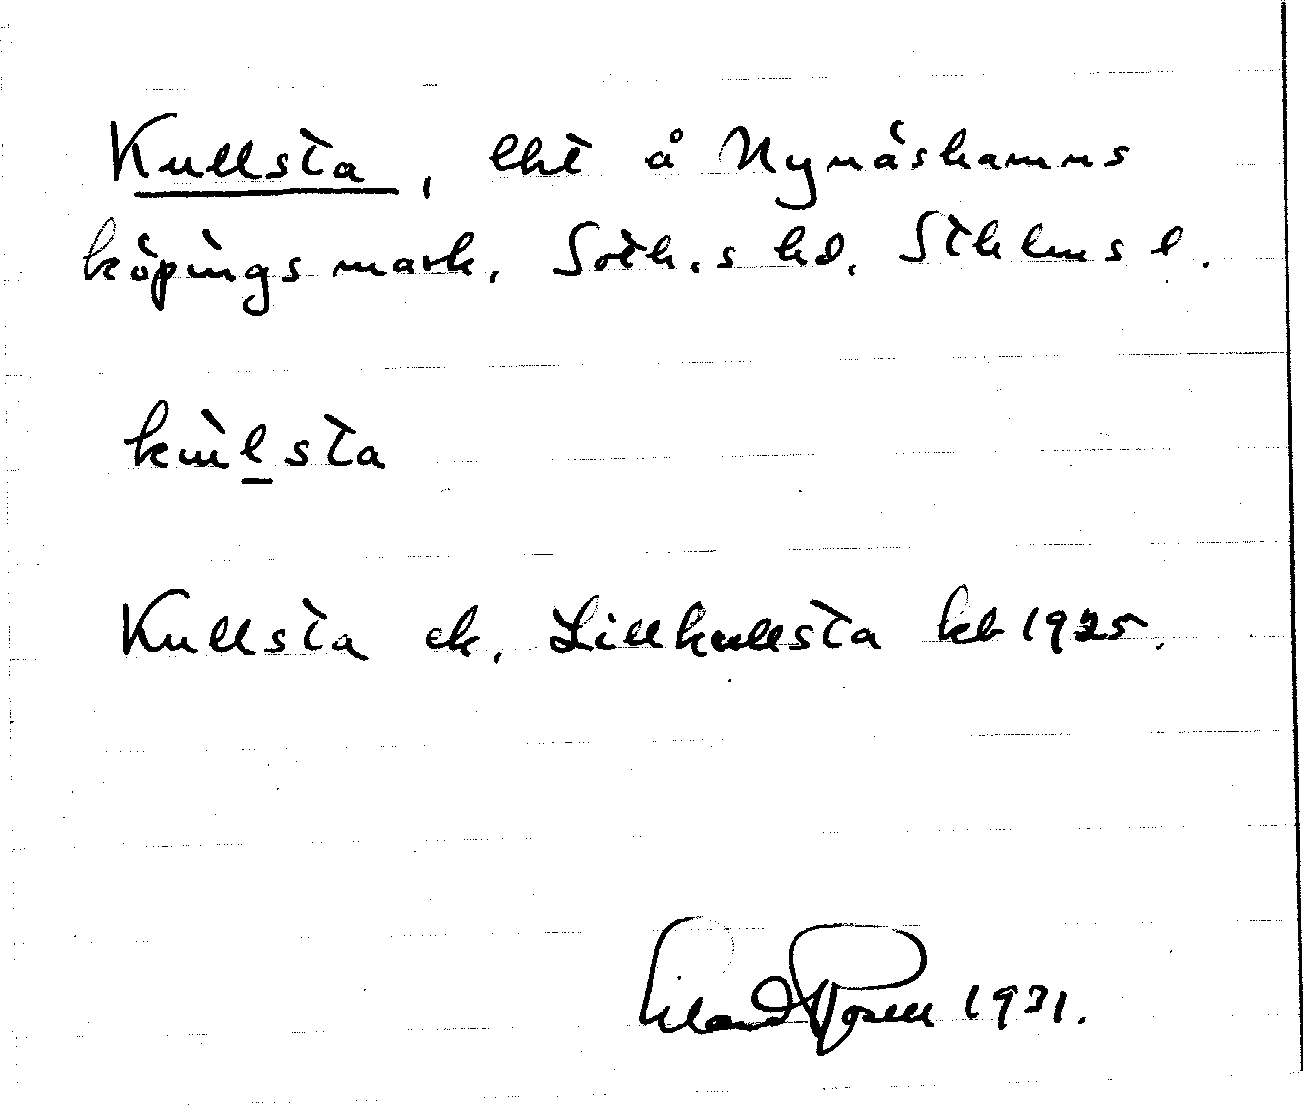 Kullsta, lht å Nynäshamns
köpings mark. Soth.s hd. Sthlms l.
kùlsta
Kullsta ek, Lillkullsta kb 1925.
Erland Rosell 1931.